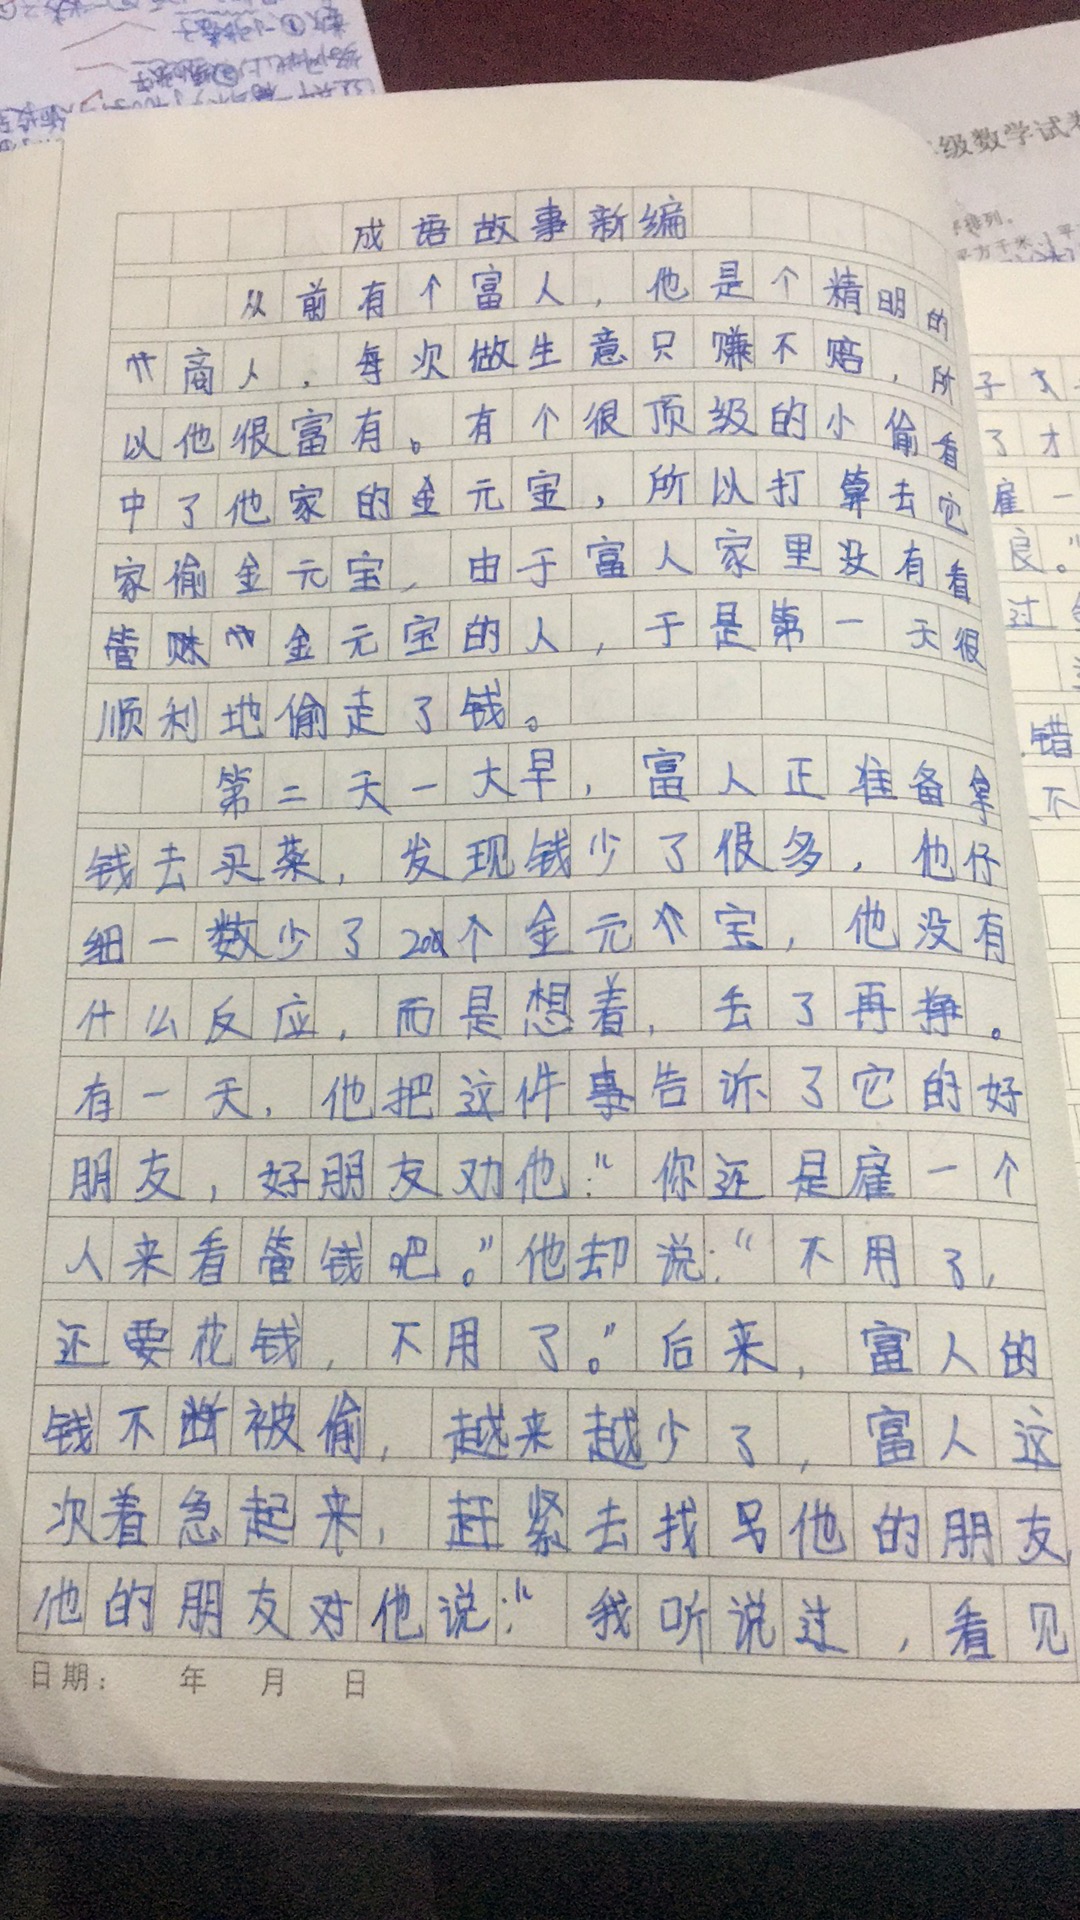 成语故事新编
从前有个富人，他是个精明的
商人，每次做生意只赚不赔，所
以他很富有。有个很顶级的小偷看
中了他家的金元宝，所以打算去它
家偷金元宝，由于富人家里没有看
管 金元宝的人，于是第一天很
顺利地偷走了钱。
第二天一大早，富人正准备拿
钱去买菜，发现钱少了很多，他仔
细一数少了 个金元宝，他没有
什么反应，而是想着，丢了再挣。
有一天，他把这件事告诉了它的好
朋友，好朋友劝他：“你还是雇一个
人来看管钱吧。”他却说：“不用了，
还要花钱，不用了。”后来，富人的
钱不断被偷，越来越少了，富人这
次着急起来，赶紧去找另他的朋友，
他的朋友对他说：“我听说过，看见
日期： 年 月 日
级数学试卷
排列。
平方千米
子
了才
雇一
良。”
过
错
不